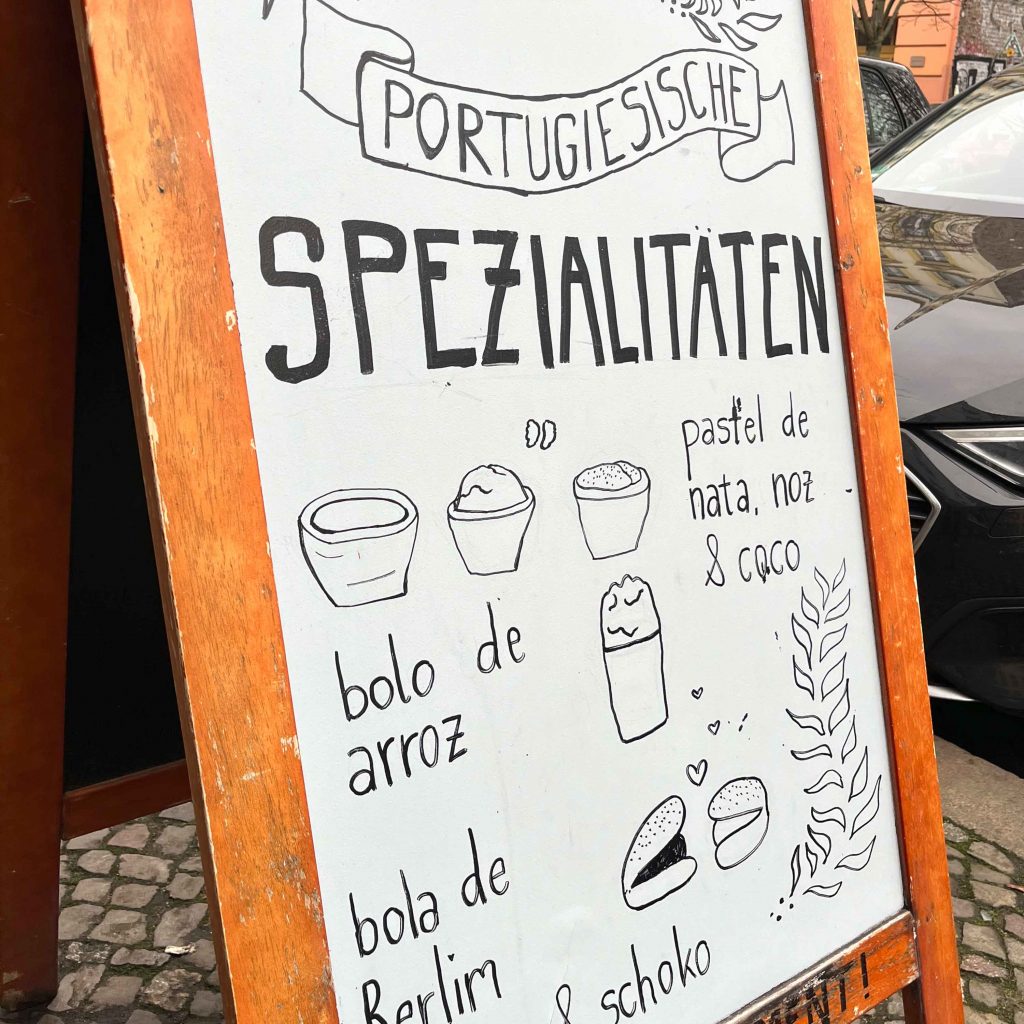 PORTUGIESISCHE
SPEZIALITÄTEN
pastel de
nata, noz
& coco
bolo de
arroz
bola de
Berlim
& schoko